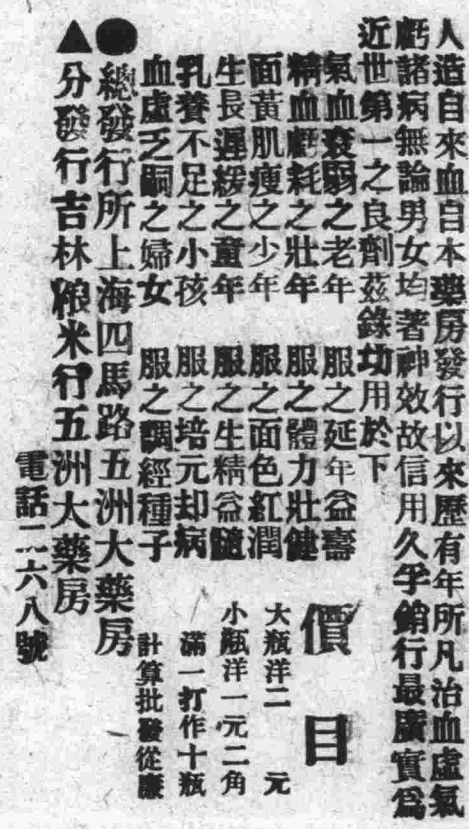 人造自來血自本藥房發行以來歷有年所凡治血虛氣
虧諸病無論男女均著神效故信用久孚銷行最廣實爲
近世第一之良劑茲錄功用於下
氣血衰弱之老年 服之延年益壽
精血虧耗之壯年 服之體力壯健
面黃肌瘦之少年 服之面色紅潤
生長遲緩之童年 服之生精益髓
乳養不足之小孩 服之培元却病
血虛乏嗣之婦女 服之調經種子
價目
大瓶洋二元
小瓶洋一元二角
滿一打作十瓶
計算批發從廉
●總發行所上海四馬路五洲大藥房
▲分發行吉林粮米行五洲大藥房
電話二六八號